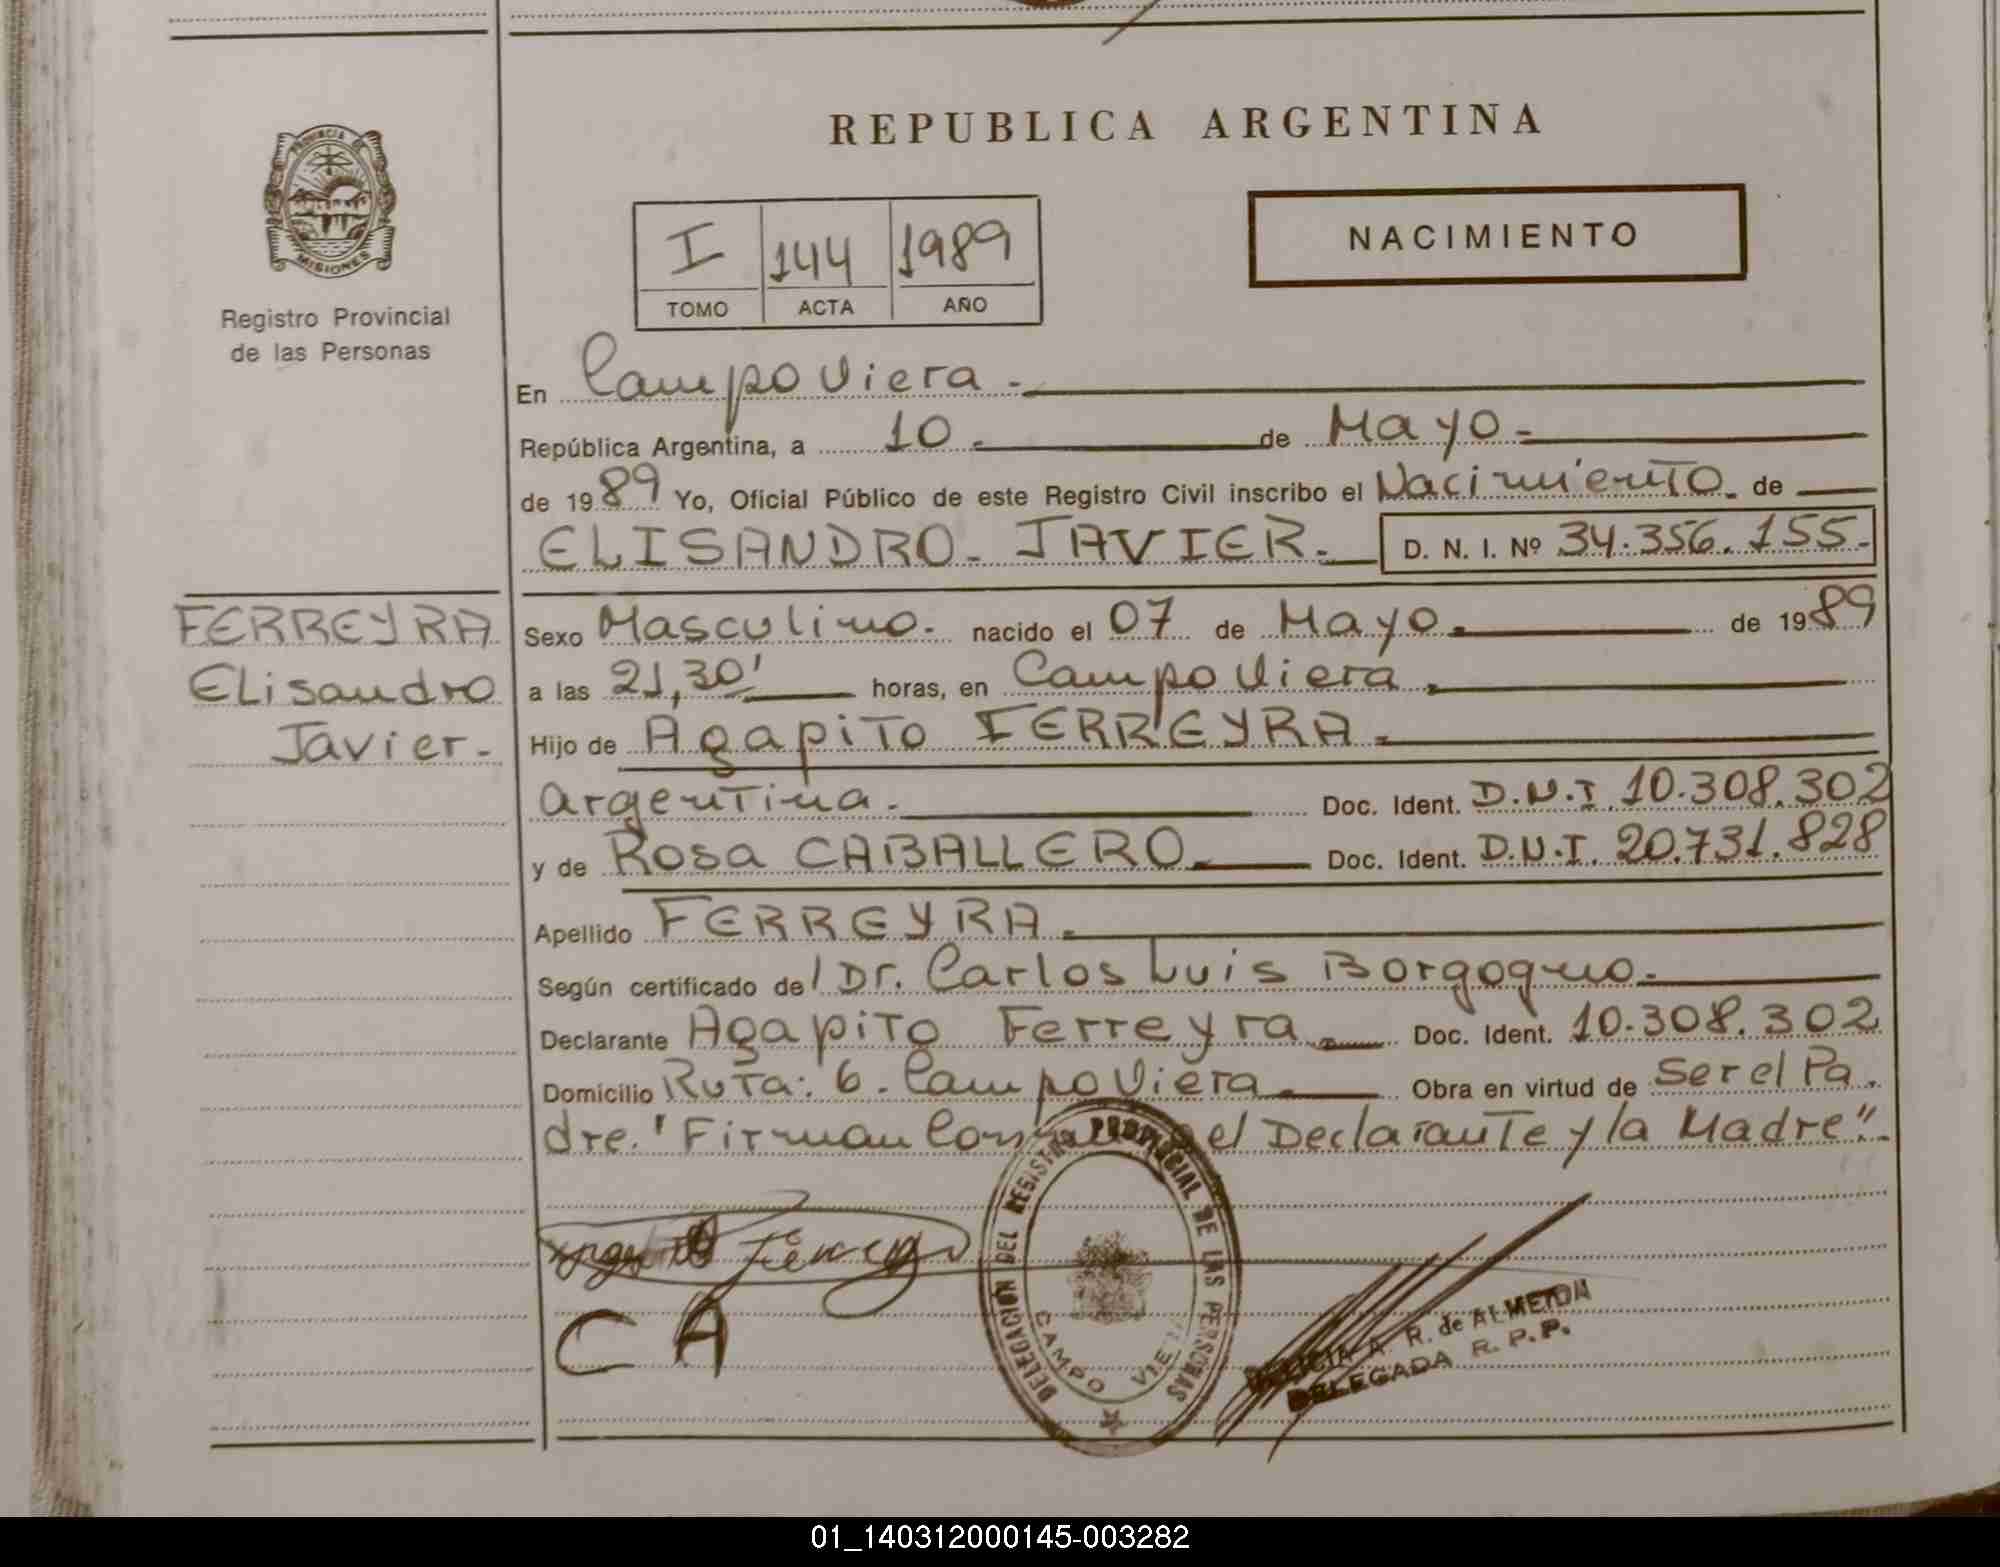 REPUBLICA ARGENTINA
PROVINCIA DE
MISIONES
Registro Provincial
de las Personas
I 144 1989
TOMO ACTA AÑO
NACIMIENTO
En Campo Viera.-
República Argentina, a 10.- de Mayo.-
de 1989 Yo, Oficial Público de este Registro Civil inscribo el Nacimiento. de
ELISANDRO- JAVIER.- D. N. I. Nº 34.356.155.-
FERREYRA
Elisandro
Javier.-
Sexo Masculino. nacido el 07 de Mayo. de 1989
a las 21,30' horas, en Campo Viera.
Hijo de Agapito FERREYRA.
argentina. Doc. Ident. D.N.I. 10.308.302
y de Rosa CABALLERO. Doc. Ident. D.N.I. 20.731.828
Apellido FERREYRA.
Según certificado del Dr. Carlos Luis Borgogno.
Declarante Agapito Ferreyra. Doc. Ident. 10.308.302
Domicilio Ruta: 6. Campo Viera. Obra en virtud de Ser el Pa.
dre." Firman el Declarante y la Madre".
CA
DELEGACIÓN DEL REGISTRO PROVINCIAL DE LAS PERSONAS
CAMPO VIERA
A. R. de ALMEIDA
DELEGADA R. P. P.
01_140312000145-003282